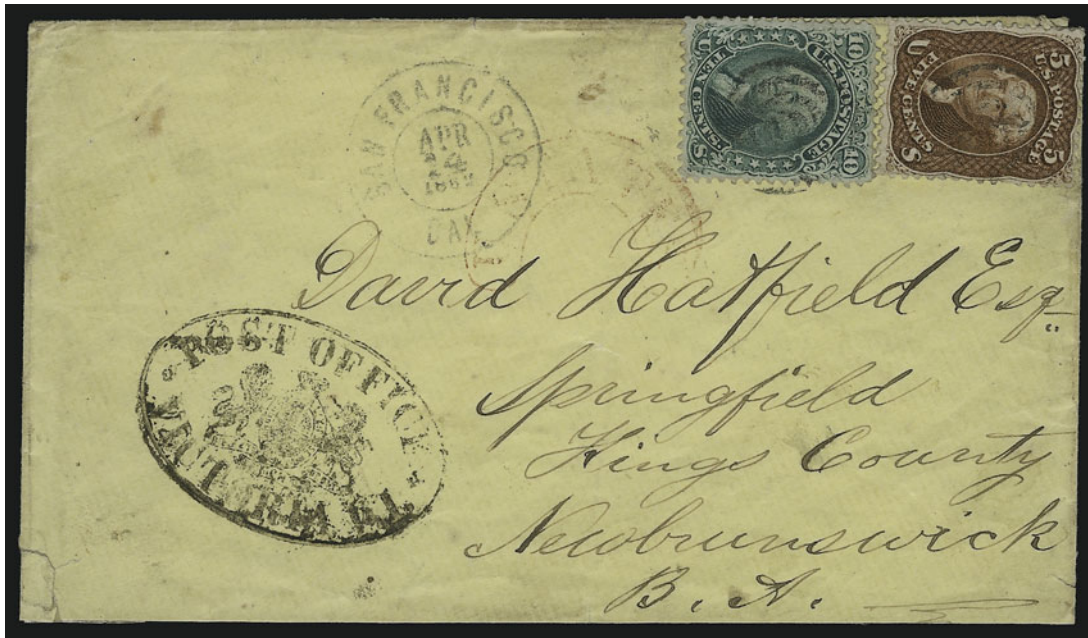 SAN FRANCISCO CAL
APR
24
DAY
U.S. POSTAGE
10 10
TEN CENTS
U S
U.S. POSTAGE
5 5
FIVE CENTS
U S
David Hatfield Esq
Springfield
Kings County
Newbrunswick
B. A.
POST OFFICE
VICTORIA V.I.